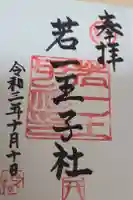 奉拝
若一王子社
令和二年十月十日